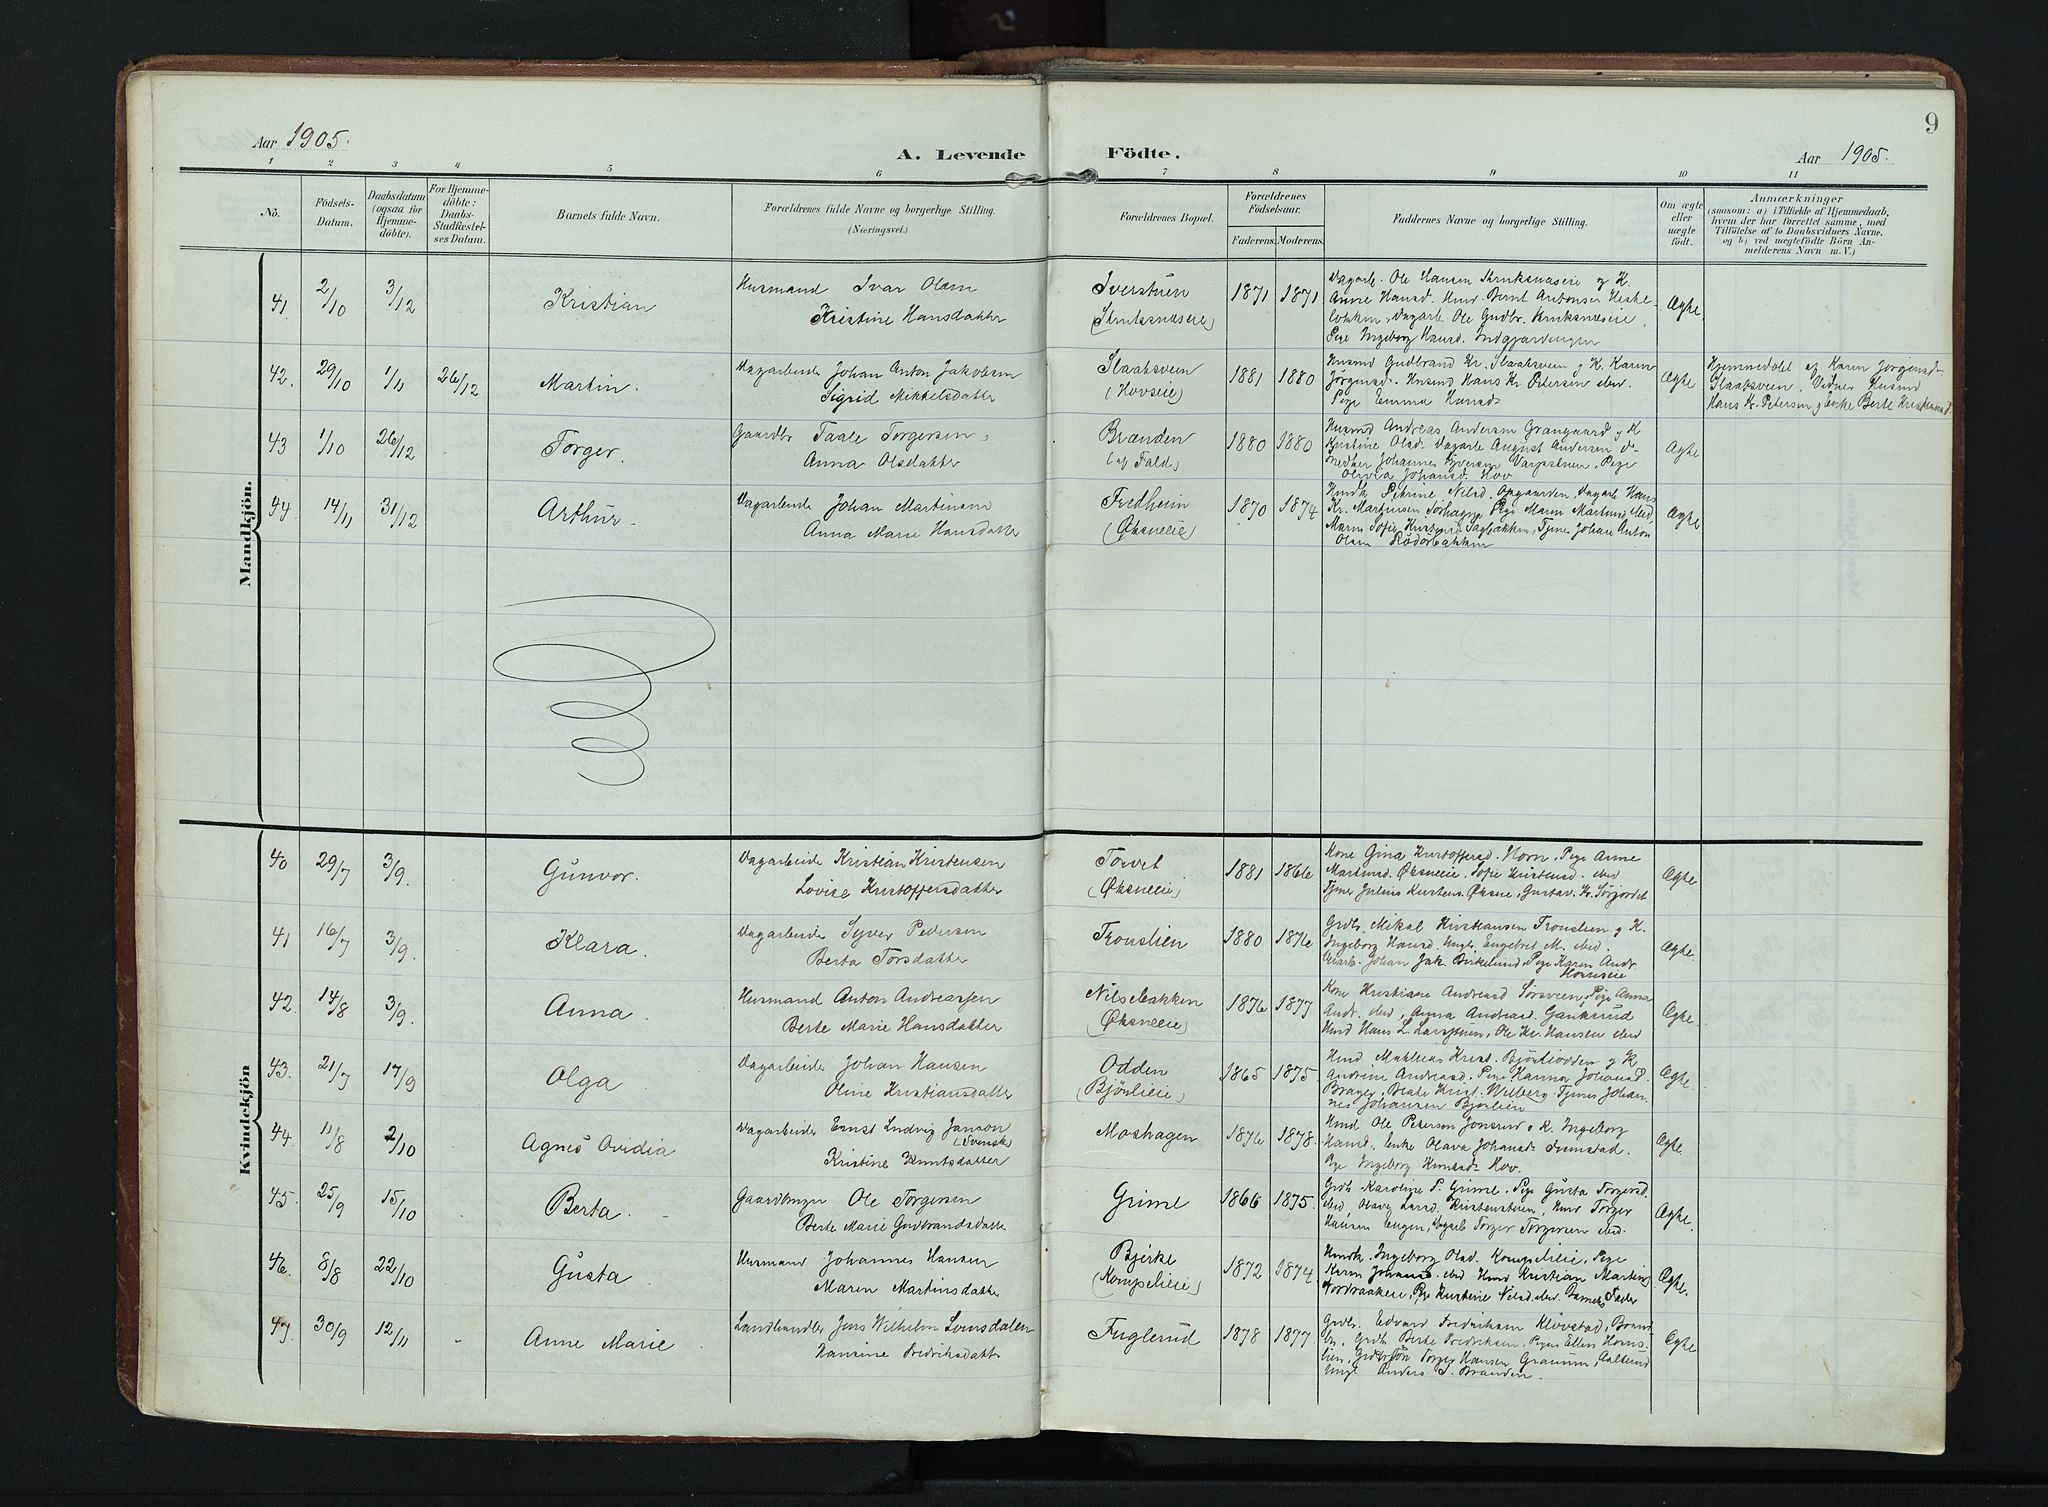 9
Aar 1905.
A. Levende Födte.
Aar 1905.
1 2 3 4 5 6 7 8 9 10 11
No.
Födsels-Datum.
Daabsdatum (ogsaa for Hjemme-döbte).
For Hjemme-döbte: Daabs-Stadfæstel-ses Datum.
Barnets fulde Navn.
Forældrenes fulde Navne og borgerlige Stilling.
(Næringsvei.)
Forældrenes Bopæl.
Forældrenes Födselsaar.
Faderens. Moderens.
Faddernes Navne og borgerlige Stilling.
Om ægte eller uægte födt.
Anmærkninger
(saasom: a) i Tilfælde af Hjemmedaab,
hvem der har forrettet samme, med
Tilföielse af to Daabsvidners Navne.
og b) ved uægtefödte Börn An-
melderens Navn m. V.)
Mandkjön.
41. 2/10 3/12 Kristian
Husmand Ivar Olsen
Kristine Hansdatter
Iverstuen
1871 1871
Dagarb. Ole Hansen
Ægte.
42. 29/10 1/11 26/12 Martin.
Dagarbeider Johan Anton Jakobsen
Sigrid Mikkelsdatter
Slaatsveen
(Hovseie)
1881 1880
Husmd Gudbrand Kr. Slaatsveen g K. Karen
Jörgensd. Husmd Hans Kr. Petersen ibid.
Pige Emma Hansd.
Ægte
Hjemmedöbt af Karen Jörgensd.
Slaatsveen. Vidner Husmd
Hans Kr. Petersen g Enke Berte
43 1/10 26/12 Torger.
Gaardbr Taale Torgersen
Anna Olsdatter
Brænden
(af Fald)
1880 1880
Husmd Andreas Andersen Grangaard g K
Kristine Olsd. Dagarb August Andersen
Johannes Iversen Pige
Olivia Johansd. Hov
Ægte
44. 14/11 31/12 Arthur.
Dagarbeider Johan Martinsen
Anna Marie Hansdatter
Fredheim
(Øksneeie)
1870 1874
Petrine Nilsd. Opgaarden, Dagarb Hans
Kr. Martinsen Pige Maren Martinsd. ibid,
Maren Sofie Sagbakken, Tjener Johan Anton
Olsen
Ægte
Kvindekjön
40 29/7 3/9. Gunvor.
Dagarbeider Kristian Kristensen
Lovise Kristoffersdatter
Torvet
(Øksneeie)
1881 1866
Kone Gina Kristoffersd. Horn. Pige Anne
Martinsd. Øksneeie. Sofie Kristensd. ibid
Tjener Julius Kristens. Øksne, Gustav Kr. Sörjordet
Ægte
41 16/7 3/9. Klara.
Dagarbeider Syver Pedersen
Berta Torsdatter
Tronslien
1880 1876
Grdb. Mikal Kristiansen Tronslien g K.
Ingeborg Hansd. Ungk. Engebret M. ibid.
Johan Jak. Birkelund, Pige Karen Andr.
Hornseie
Ægte.
42. 14/8 3/9. Anna.
Husmand Anton Andreassen
Berte Marie Hansdatter
Nilsebakken
(Øksneeie)
1876 1877
Kone Kristiane Andreasd Sörsveen, Pige Anna
Andr. ibid, Anna Andreasd.
Hmd Hans L. Ole Kr. Hansen ibid
Ægte.
43. 21/7 17/9 Olga
Dagarbeider Johan Hansen
Oline Kristiansdatter
Odden
(Bjöslieie)
1865 1875
Hmd Mathias Krist.
Andrine Andreasd. Pige Hanna Johansd.
Beate Krist. Tjener Johan-
nes Johansen Bjöslien
Ægte.
44. 11/8 2/10 Agnes Ovidia
Dagarbeider Ernst Ludvig Janson
(Svensk)
Kristine Knutsdatter
Moshagen
1876 1878.
Hmd Ole Petersen Jonsrud g K. Ingeborg
Hansd. Enke Olava Johansd.
Pge Ingeborg Hov.
Ægte.
45. 25/9 15/10 Berta.
Gaardbruger Ole Torgersen
Berte Marie Gudbrandsdatter
Grime
1866 1875.
Grdk. Karoline P. Grime. Pige Gusta Torgersd.
ibid, Olave Larsd. Kristenstuen, Hmd Torger
Hansen Engen, Torger Torgersen ibid.
Ægte.
46. 8/8 22/10 Gusta
Husmand Johannes Hansen
Maren Martinsdatter
Bjerke
(Kompelieie)
1872 1874
Ingeborg Olsd. Kompelieie, Pige
Karen Johansd. ibid Hmd Kristian Martins
Pge Kristine Nilsd. ibid. Barnets Fader
Ægte.
47. 30/9 12/11 Anne Marie
Landhandler Jens Wilhelm
Hansine Fredriksdatter
Fuglerud
1878 1877.
Grdbr. Edvard Fredriksen Klovstad,
Grdk Berte Fredriksen, Pigen Ellen
Torger Hansen
Ungk Anders T. Brænden.
Ægte